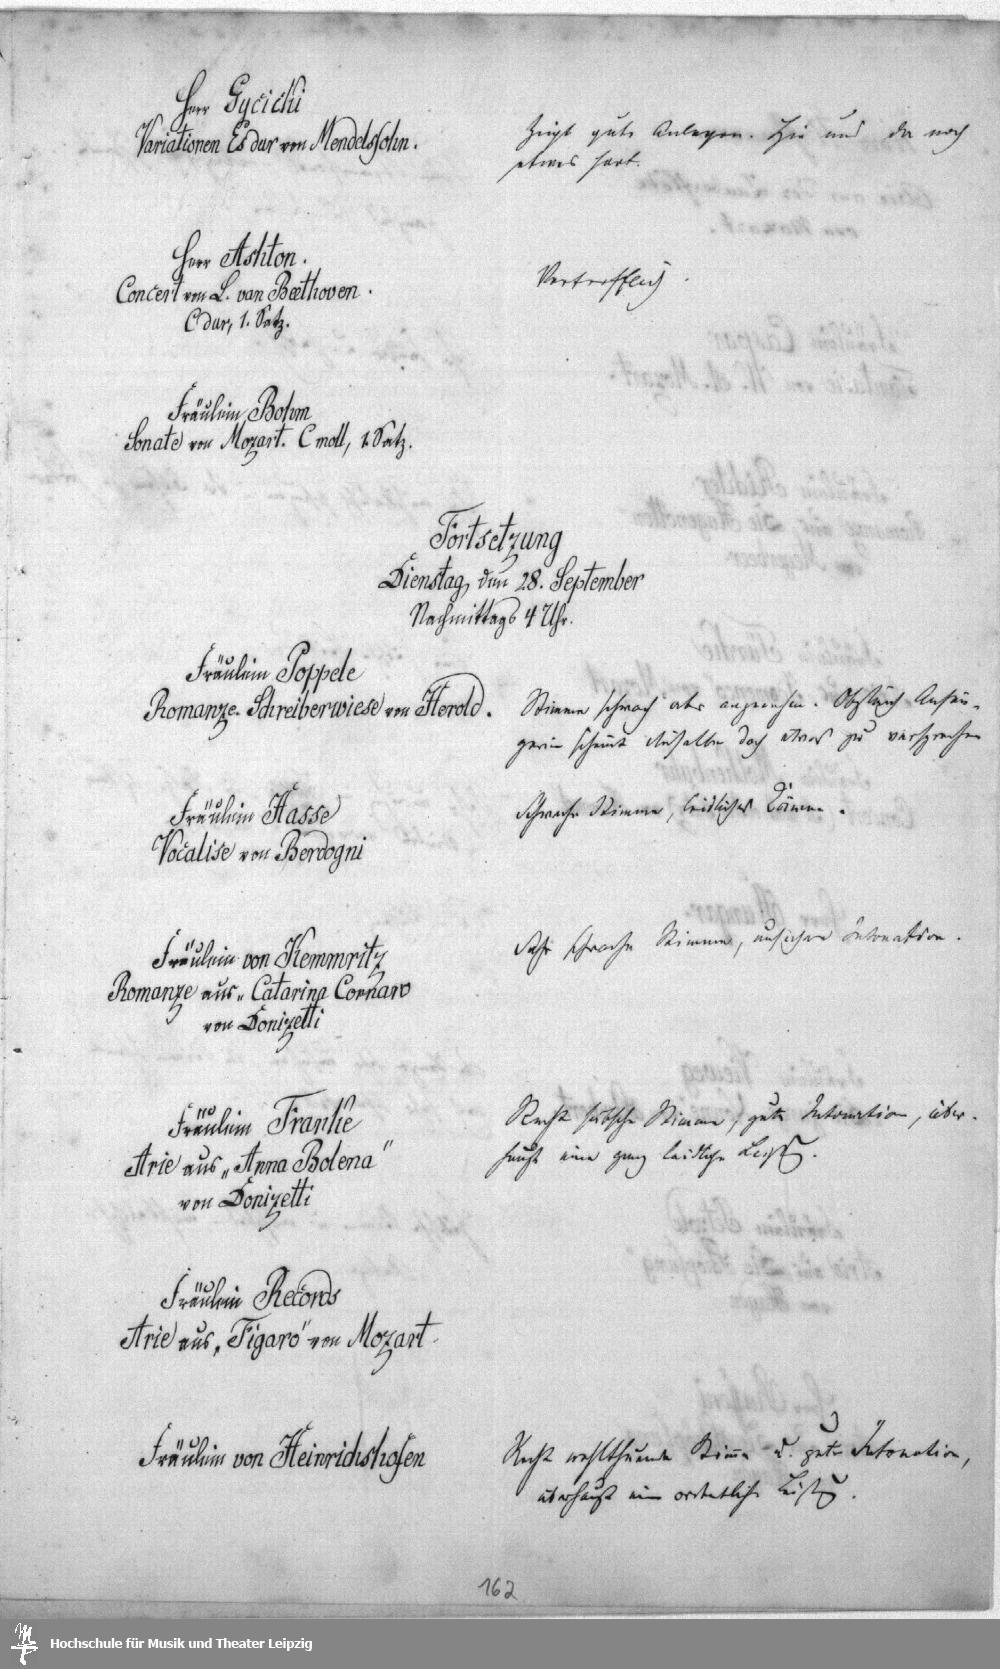 Herr Gyčički
Variationen Es dur von Mendelssohn.
Zeigt gute Anlagen. Hie und da noch
etwas hart.
Herr Ashton.
Concert von L. van Beethoven.
C dur, 1. Satz.
Vortrefflich.
Fräulein Bohm
Sonate von Mozart. C moll, 1. Satz.
Fortsetzung
Dienstag, den 28. September
Nachmittags 4 Uhr.
Fräulein Poppele
Romanze. Schreiberwiese von Herold.
Stimme schwach aber angenehm. Obgleich Anfän-
gerin scheint dieselbe doch etwas zu versprechen
Fräulein Hasse
Vocalise von Bordogni
Schwache Stimme, leidliches Können.
Fräulein von Kemmritz
Romanze aus „Catarina Cornaro
von Donizetti
Sehr schwache Stimme, unsichere Intonation.
Fräulein Franke
Arie aus „Anna Bolena"
von Donizetti
Recht hübsche Stimme, gute Intonation, über-
haupt eine ganz leidliche Leistg.
Fräulein Records
Arie aus „Figaro" von Mozart.
Fräulein von Heinrichshofen
Recht wohlthuende Stimme u. gute Intonation,
überhaupt eine ordentliche Leistg.
162
Hochschule für Musik und Theater Leipzig